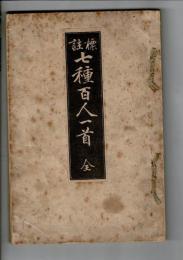 標註
七種百人一首 全